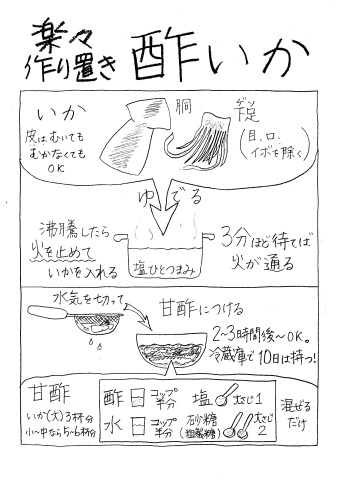 楽々
作り置き 酢いか
いか
皮はむいても
むかなくても
OK
胴
ゲソ
足
(目、口、
イボを除く)
ゆでる
沸騰したら
火を止めて
いかを入れる
塩ひとつまみ
3分ほど待てば
火が通る
水気を切って
甘酢につける
2~3時間後~OK。
冷蔵庫で10日は持つ!
甘酢
いか(大)3杯分
小~中なら5~6杯分
酢 コップ半分 塩 大さじ1
水 コップ半分 砂糖(粗製糖) 大さじ2
混ぜる
だけ